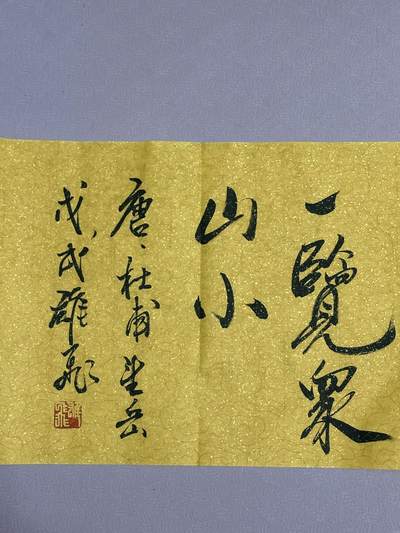 一覽眾
山小
唐、杜甫望岳
戊、戌雄飛